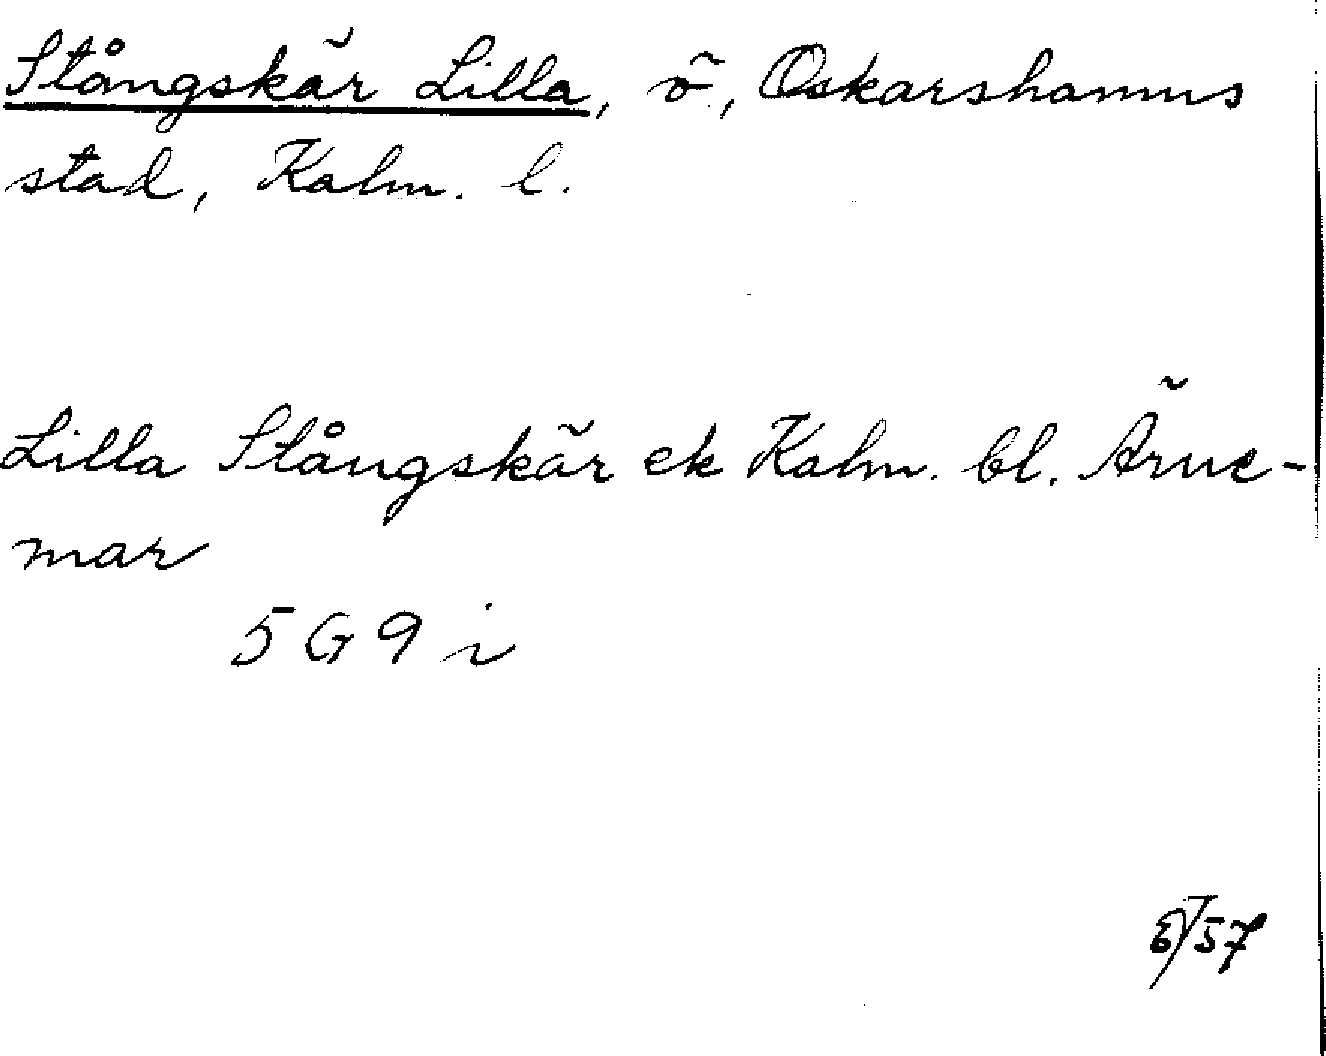 Stångskär Lilla, ö, Oskarshamns
stad, Kalm. l.
Lilla Stångskär ek Kalm. bl. Ärne-
mar
5 G 9 i
57